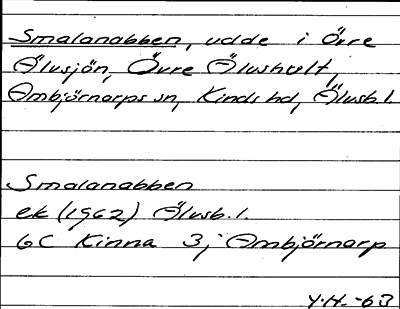 Smalanabben, udde i Övre
Älusjön, Övre Älushult,
Ambjörnarps sn, Kinds hd, Älvsb. l.
Smalanabben
ek (1962) Älvsb. l.
6C Kinna 3; Ambjörnarp
Y.H. -63